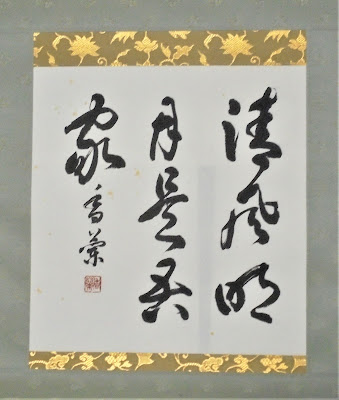 清風明
月是吾
家
香蘭